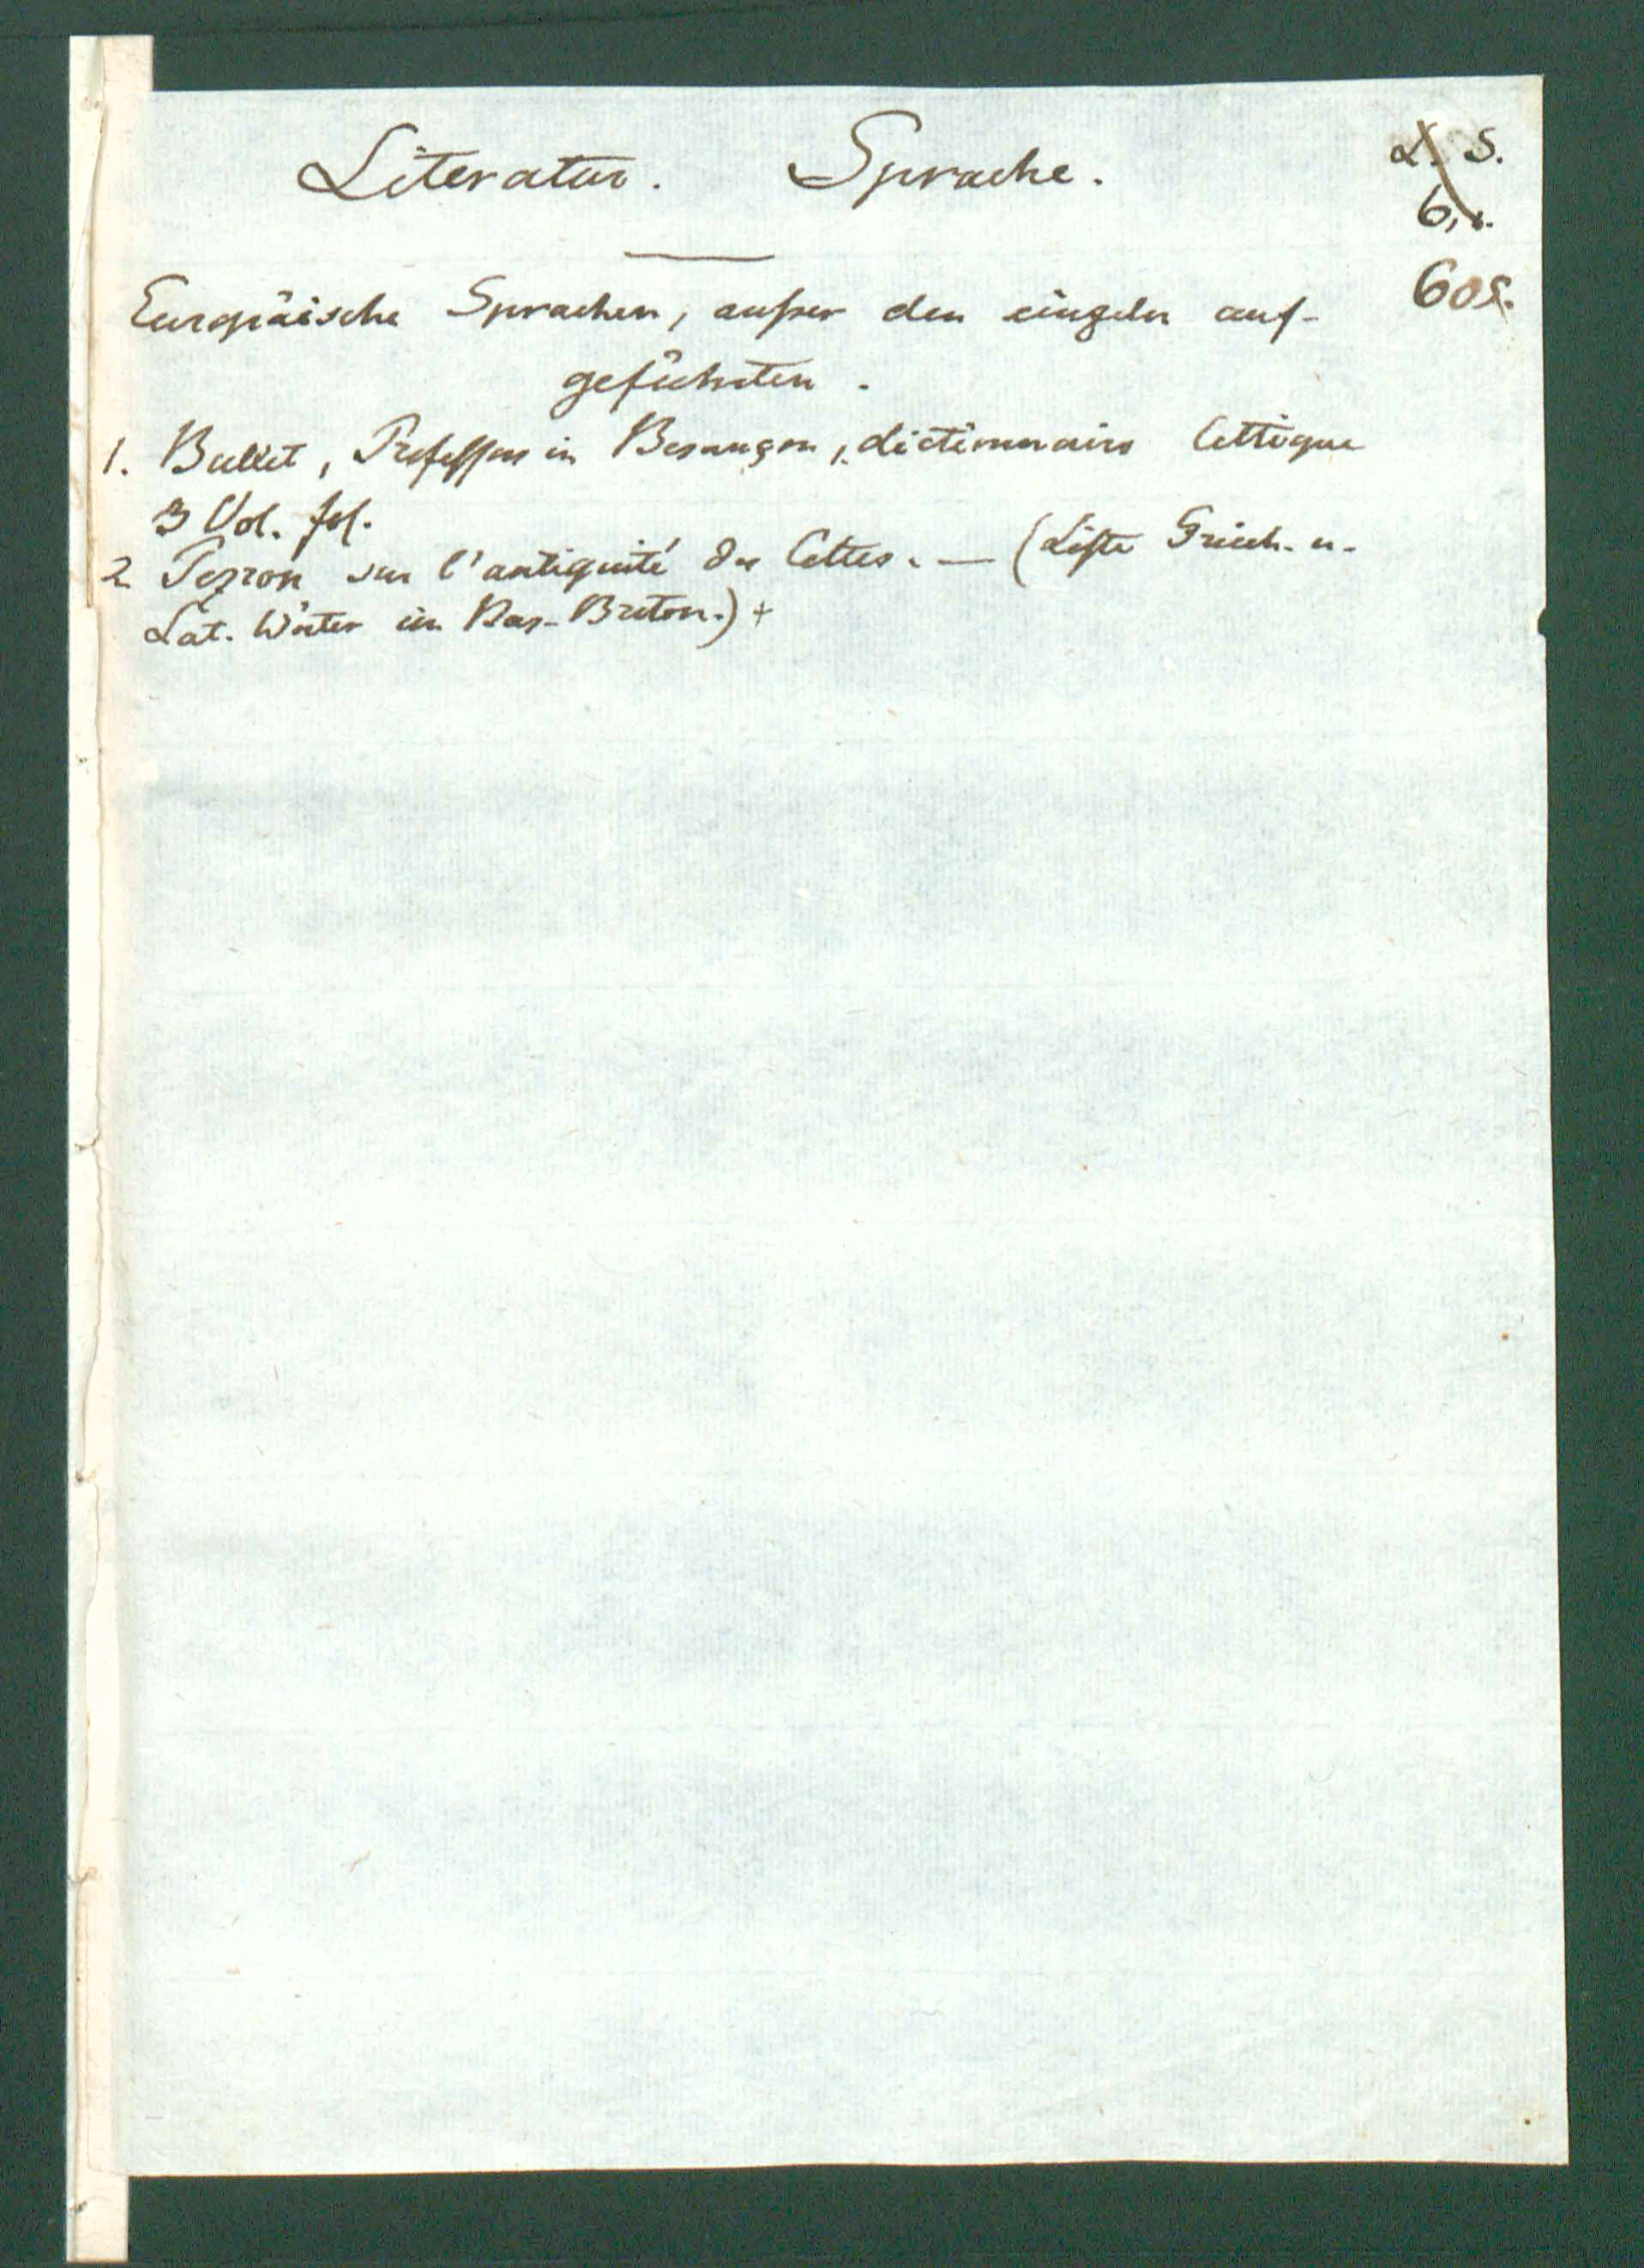 Literatur. Sprache.
L. S.
6,1.
605.
Europäische Sprachen, außer den einzeln auf-
geführten.
1. Bullet, Professor in Besançon, dictionnaire Celtique
3 Vol. fol.
2 Pezron sur l'antiquité des Celtes. — (Liste Griech. u.
Lat. Wörter im Bas-Breton.) +